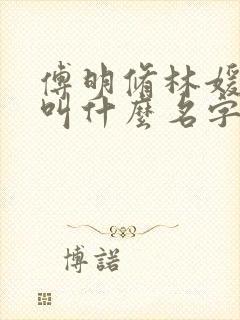 傅明脩林媛
叫什麼名字
博諾